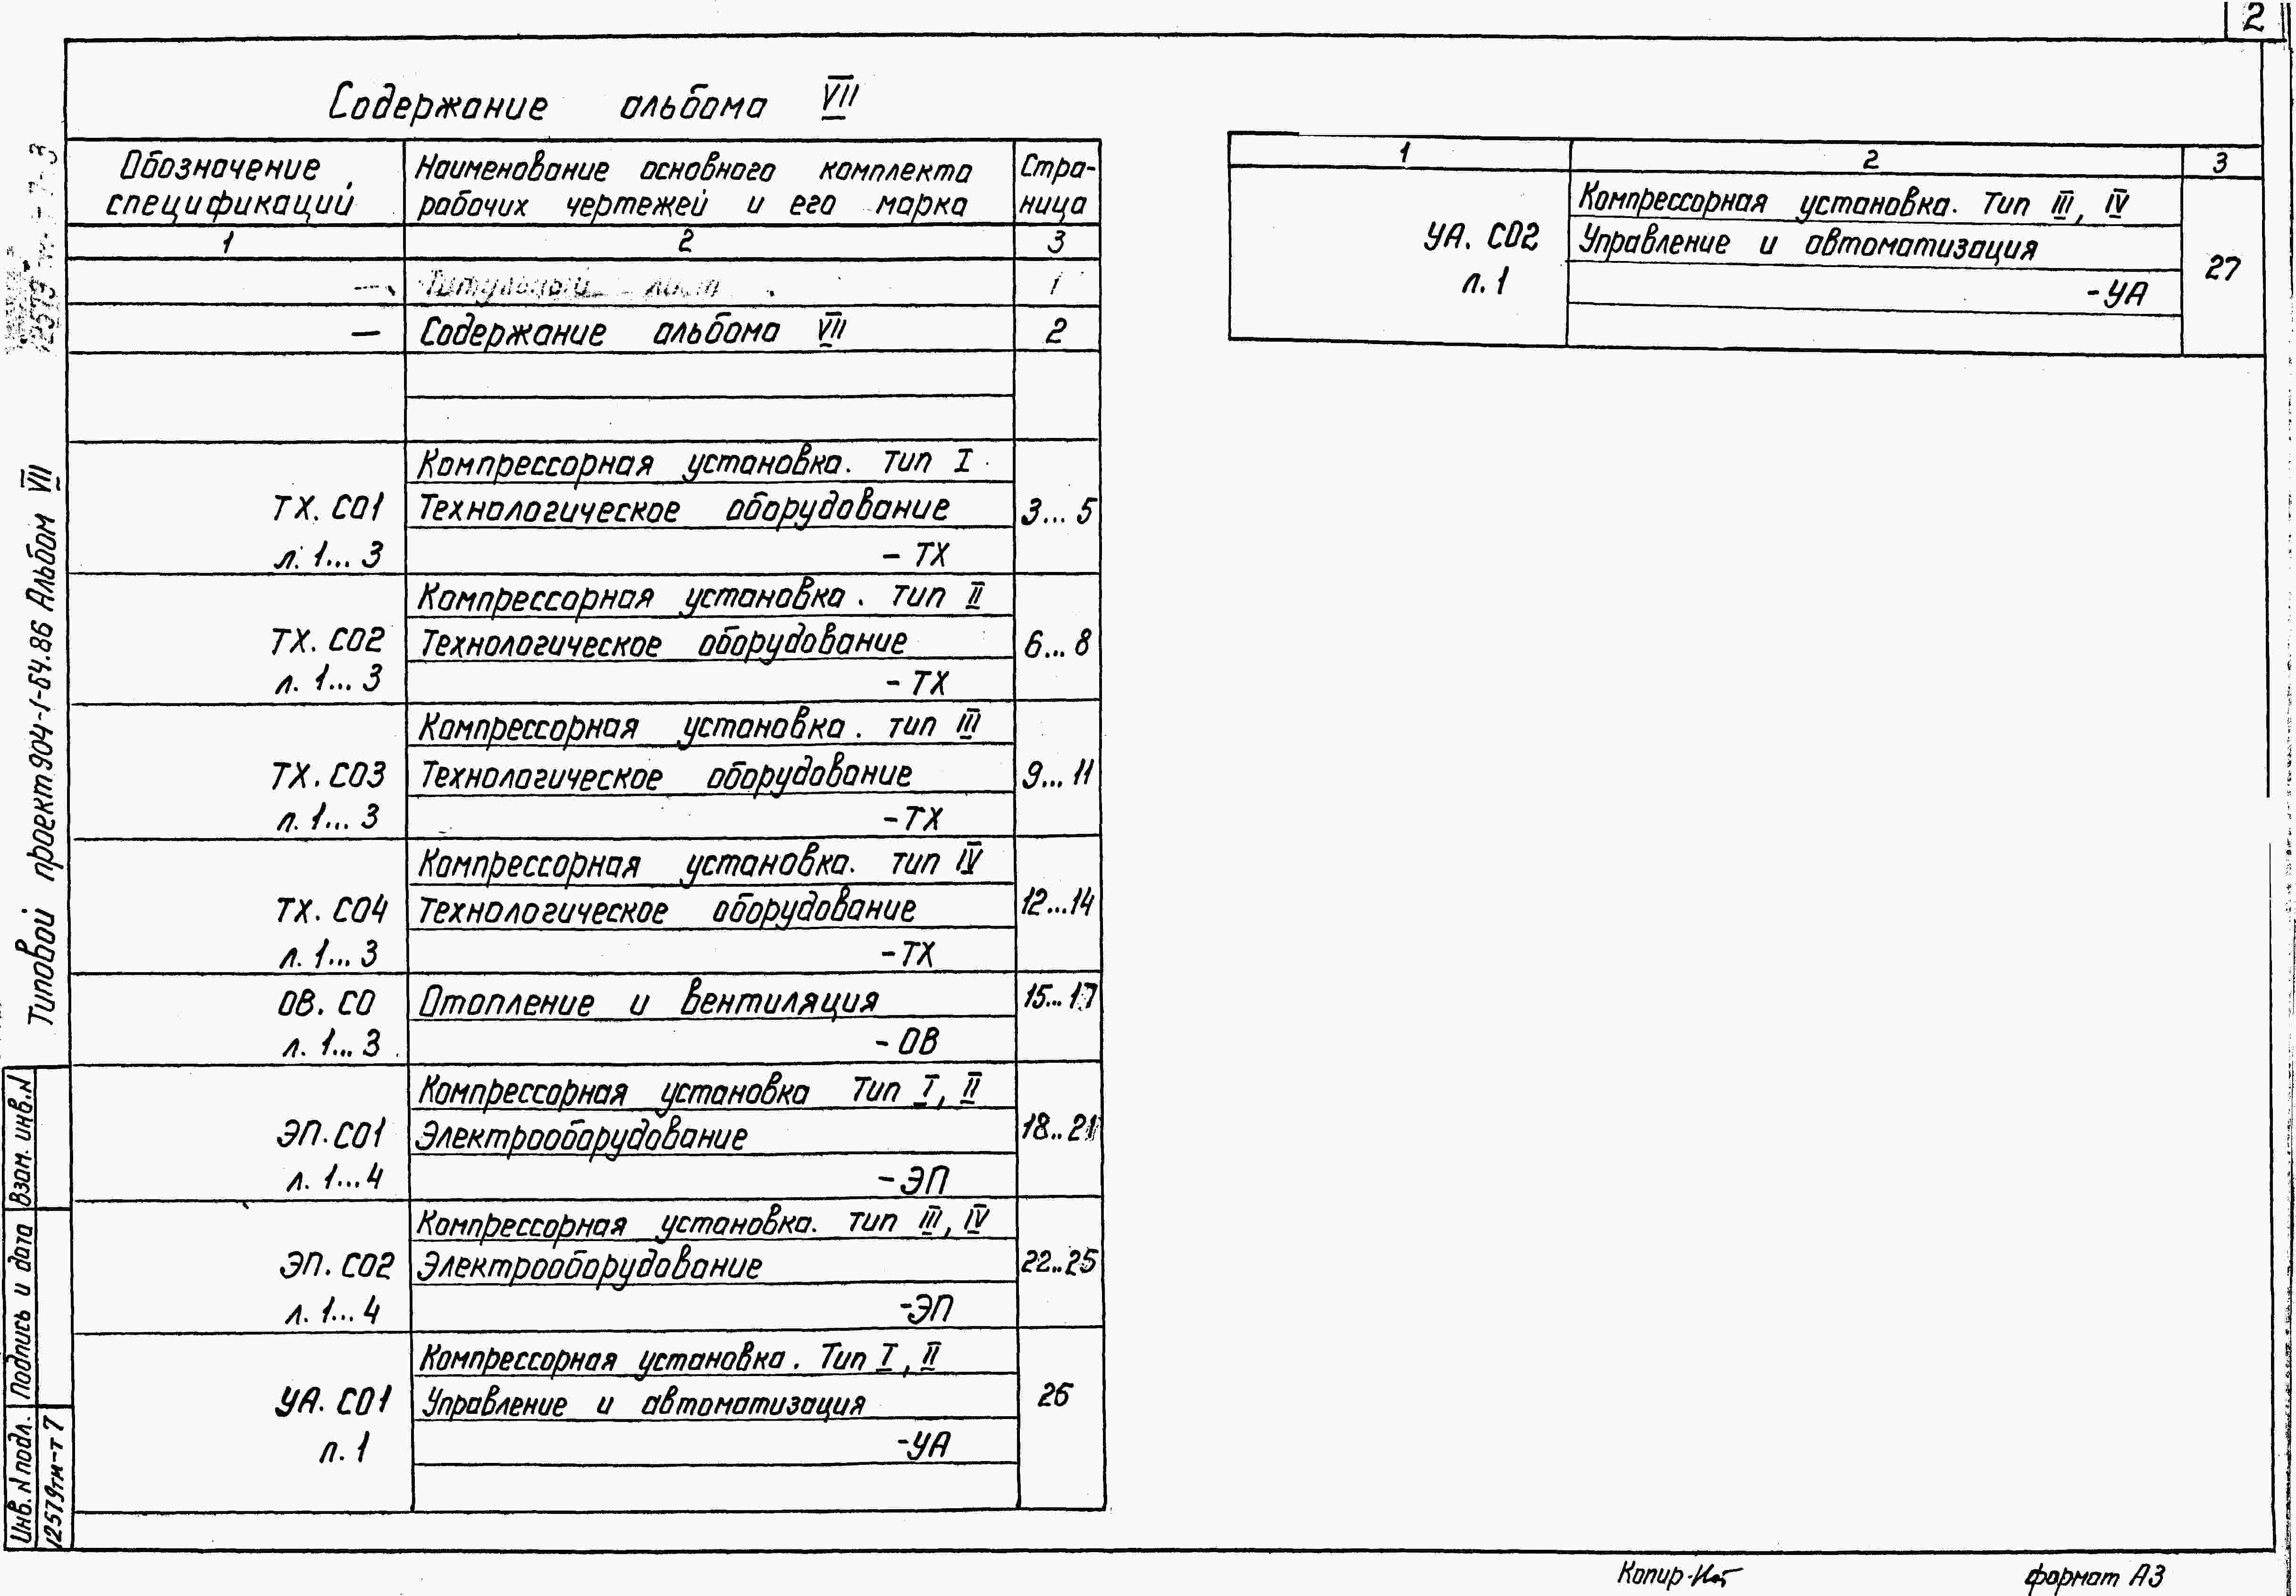 2
Содержание альбома VII
Обозначение спецификаций
Наименование основного комплекта рабочих чертежей и его марка
Стра-ница
1 2 3
— Титульный лист 1
— Содержание альбома VII 2
Компрессорная установка. Тип I
ТХ. СО1 Технологическое оборудование 3...5
л. 1...3 - ТХ
Компрессорная установка. тип II
ТХ. СО2 Технологическое оборудование 6...8
л. 1...3 - ТХ
Компрессорная установка. тип III
ТХ. СО3 Технологическое оборудование 9...11
л. 1...3 - ТХ
Компрессорная установка. тип IV
ТХ. СО4 Технологическое оборудование 12...14
л. 1...3 - ТХ
ОВ. СО Отопление и вентиляция 15...17
л. 1...3 - ОВ
Компрессорная установка Тип I, II
ЭП. СО1 Электрооборудование 18..21
л. 1...4 - ЭП
Компрессорная установка. тип III, IV
ЭП. СО2 Электрооборудование 22..25
л. 1...4 -ЭП
Компрессорная установка. Тип I, II
УА. СО1 Управление и автоматизация 26
л. 1 -УА
1 2 3
Компрессорная установка. Тип III, IV
УА. СО2 Управление и автоматизация 27
л. 1 -УА
Типовой проект 904-1-64.86 Альбом VII
Взам. инв. N
Подпись и дата
Инв. N подл.
12579тм-т 7
Копир-
формат А3